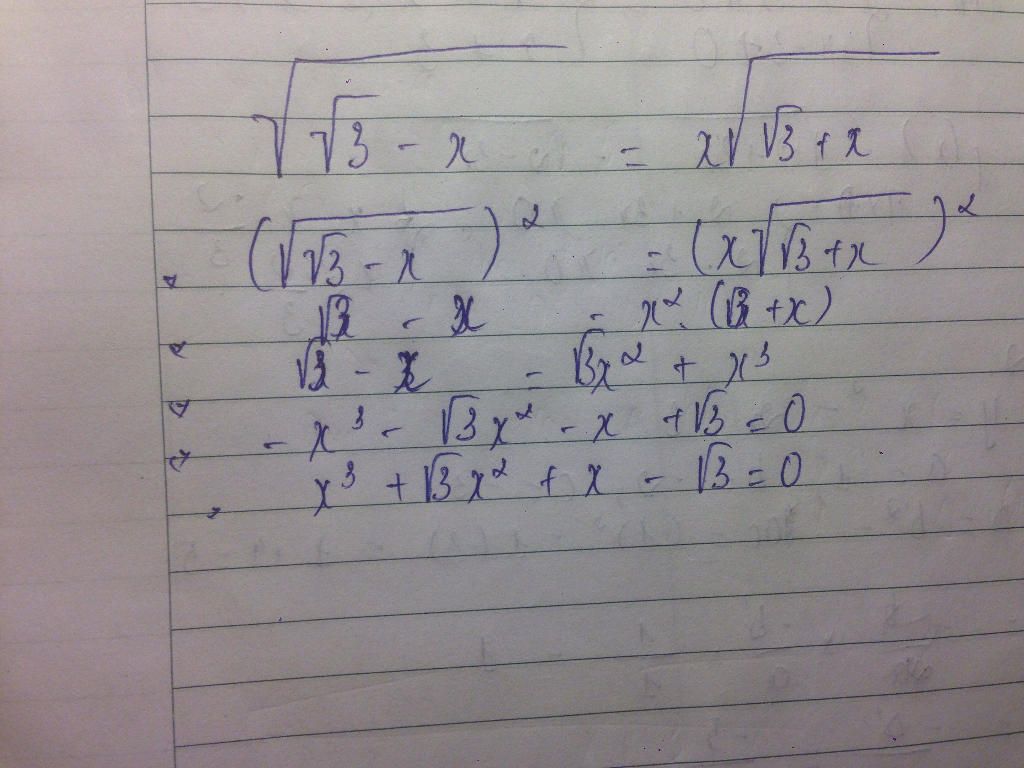 √(√3 - x) = x√(√3 + x)
(√(√3 - x))² = (x√(√3 + x))²
√3 - x = x². (√3 + x)
√3 - x = √3x² + x³
- x³ - √3x² - x + √3 = 0
x³ + √3x² + x - √3 = 0